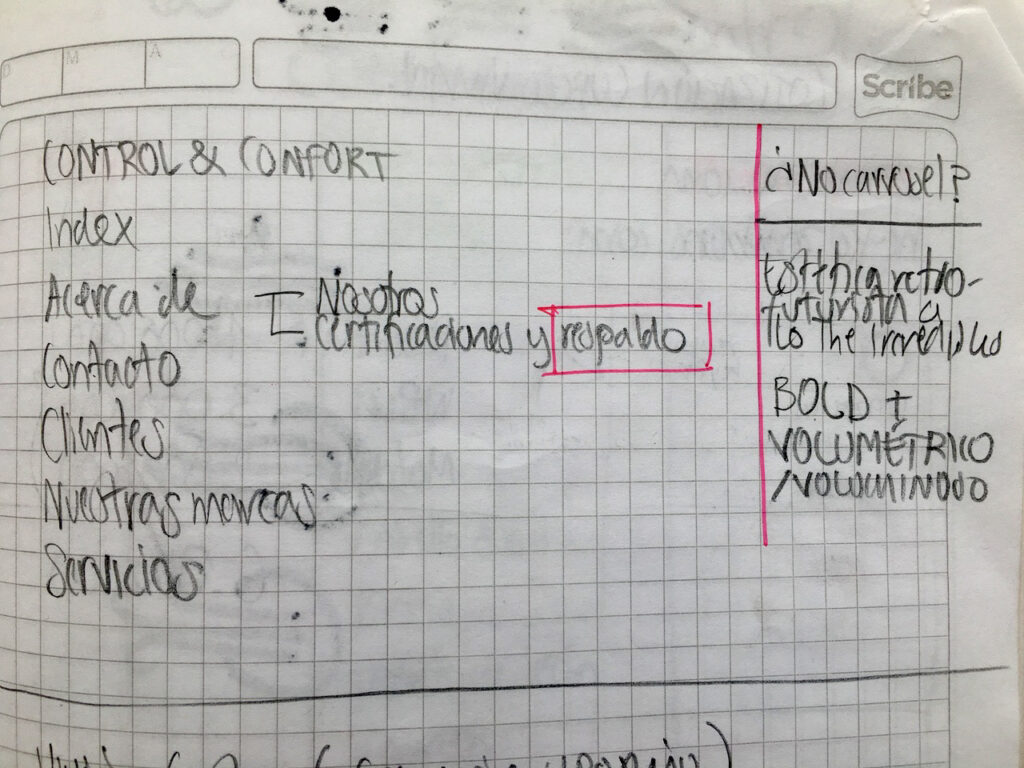 D M A
Scribe
CONTROL & CONFORT
Index
Acerca de
Nosotros
Certificaciones y respaldo
Contacto
Clientes
Nuestras marcas
Servicios
¿No carrusel?
Estética retro-
futurista a
lo the incredibles
BOLD I
VOLUMÉTRICO
/VOLUMINOSO